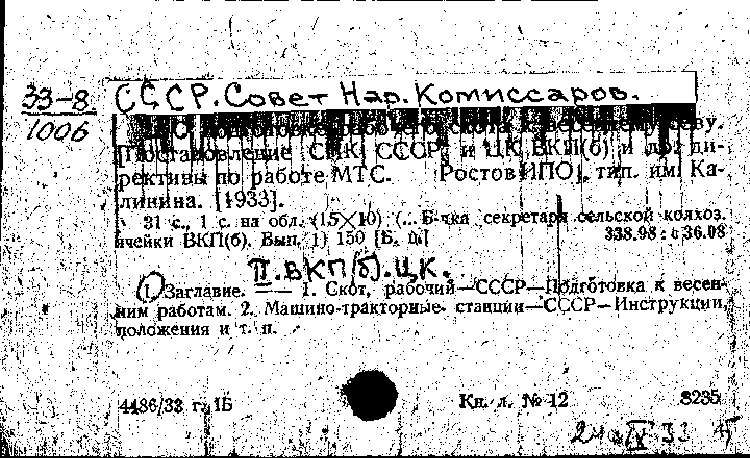 33-8
1006
СССР. Совет Нар. Комиссаров.
О подготовке рабочего скота к весеннему севу.
[Постановление СНК СССР и ЦК ВКП(б) и др. ди-
рективы по работе МТС. Ростов ИПО, тип. им. Ка-
линина. [1933].
31 с., 1 с. на обл. (15×10) (... Б-чка секретаря сельской колхоз.
ячейки ВКП(б). Вып. 1) 150 [Б. ц.]
338.98:636.08
II. ВКП(б). ЦК.
I. Заглавие. —— 1. Скот, рабочий—СССР—Подготовка к весен-
ним работам. 2. Машино-тракторные станции—СССР—Инструкции,
положения и т. п.
4486/33 г. 1Б Кн. л. № 12 8235
24. IV 33